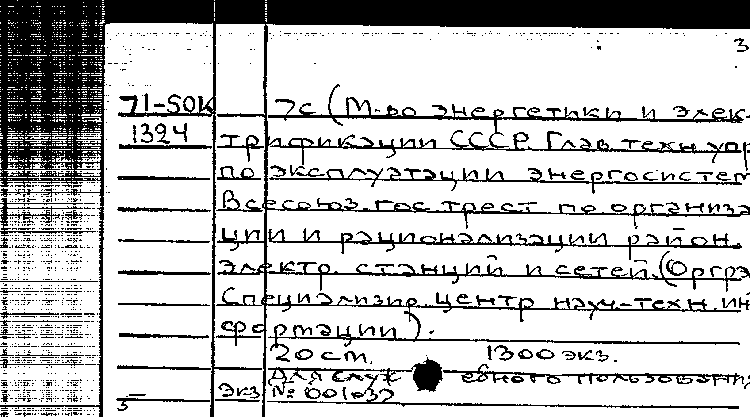 3
71-SOK 7с (М-во энергетики и элек-
1324 трификации СССР. Глав. техн. упр
по эксплуатации энергосистем
Всесоюз. гос. трест по организа
ции и рационализации район.
электр. станций и сетей (Оргрэ
Специализир. центр науч.-техн. ин
формации).
20 cm. 1300 экз.
Для служебного пользования
Экз. №